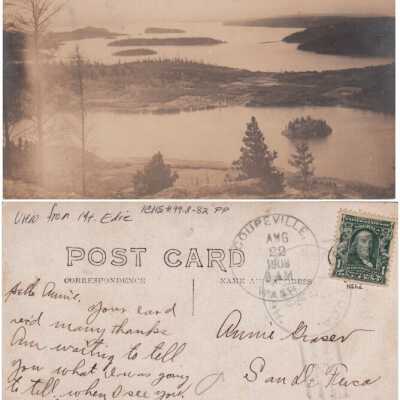 View from Mt. Erie
ICHS #99.8-82 PP
POST CARD
CORRESPONDENCE
NAME AND ADDRESS
COUPEVILLE
AUG
22
1908
8 AM
WASH.
Hello Annie. Your card
rec'd many thanks
Am waiting to tell
you what was going
to tell, when I see you.
Annie
San de Fuca